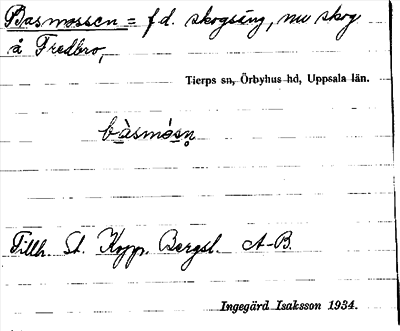 Basmossen = f d. skogsäng, nu skog
å Fredbro,
Tierps sn, Örbyhus hd, Uppsala län.
bàsmósn̥
Tillh. St. Kopp. Bergsl. A-B.
Ingegärd Isaksson 1934.